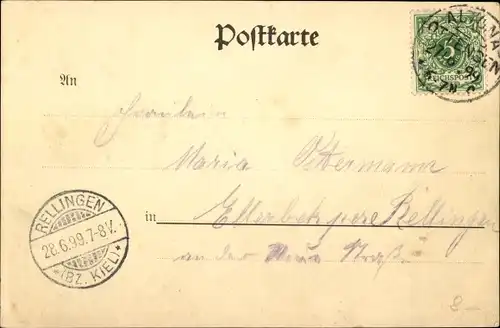 Postkarte
5
REICHSPOST
An
Fräulein
Maria Ostermann
in Ellerbek per Rellingen
an der Straße
RELLINGEN
28.6.99.7-8V.
*(BZ. KIEL)*
8-